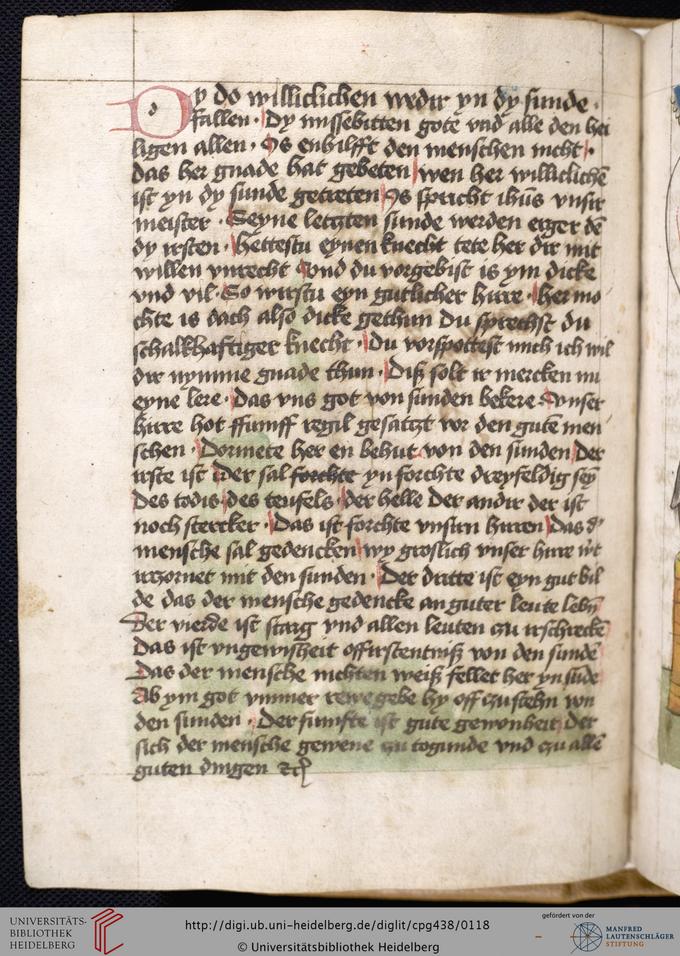 Dy do williclichen wedir yn dy sunde ·
fallen · Dy missebitten gote vnd alle den hei
ligen allen · Is enhilfft den menschen nicht ·
das her gnade hat gebeten wen her williclichē
ist yn dy sunde getreten Is spricht ihūs vnsir
meister · Seyne letzten sunde werden erger dē
dy irsten · hettestu eynen knecht tete her dir mit
willen vnrecht vnd du vorgebist is ym dicke
vnd vil · So wirstu eyn gutlicher hirre · her mo
chte is dach also dicke gethun Du sprechst du
schalkhaftiger knecht · Du vorspottest mich ich wil
dir nymme gnade thun · Diß solt ir mercken in
eyne lere · Das vns got von sunden bekere vnser
hirre hot ffumff regil gesatzt vor den gutē men
schen · Dormete her en behut von den sunden Der
irste ist Der sal forchte yn forchte dreyfeldig sey
Des todis des teufels der helle Der andir der ist
noch stercker · Das ist forchte vnsirn hirren Das d'
mensche sal gedencken wy groslich vnser hirre wt
irczornet mit den sunden · Der dritte ist eyn gut bil
de das der mensche gedencke an guter leute lebn̄
Der vierde ist starg vnd allen leuten czu irschreckē
Das ist vngewisheit offirstentniß von den sundē
Das der mensche nichten weiß fellet her yn sūde
Ab ym got vmmer rewe gebe hy off czu stehn von
den sunden · Der fumfte ist gute gewonheit Der
sich der mensche gewene czu togunde vnd czu allē
guten dingen etc
UNIVERSITÄTS-
BIBLIOTHEK
HEIDELBERG
http://digi.ub.uni-heidelberg.de/diglit/cpg438/0118
© Universitätsbibliothek Heidelberg
gefördert von der
MANFRED
LAUTENSCHLÄGER
STIFTUNG